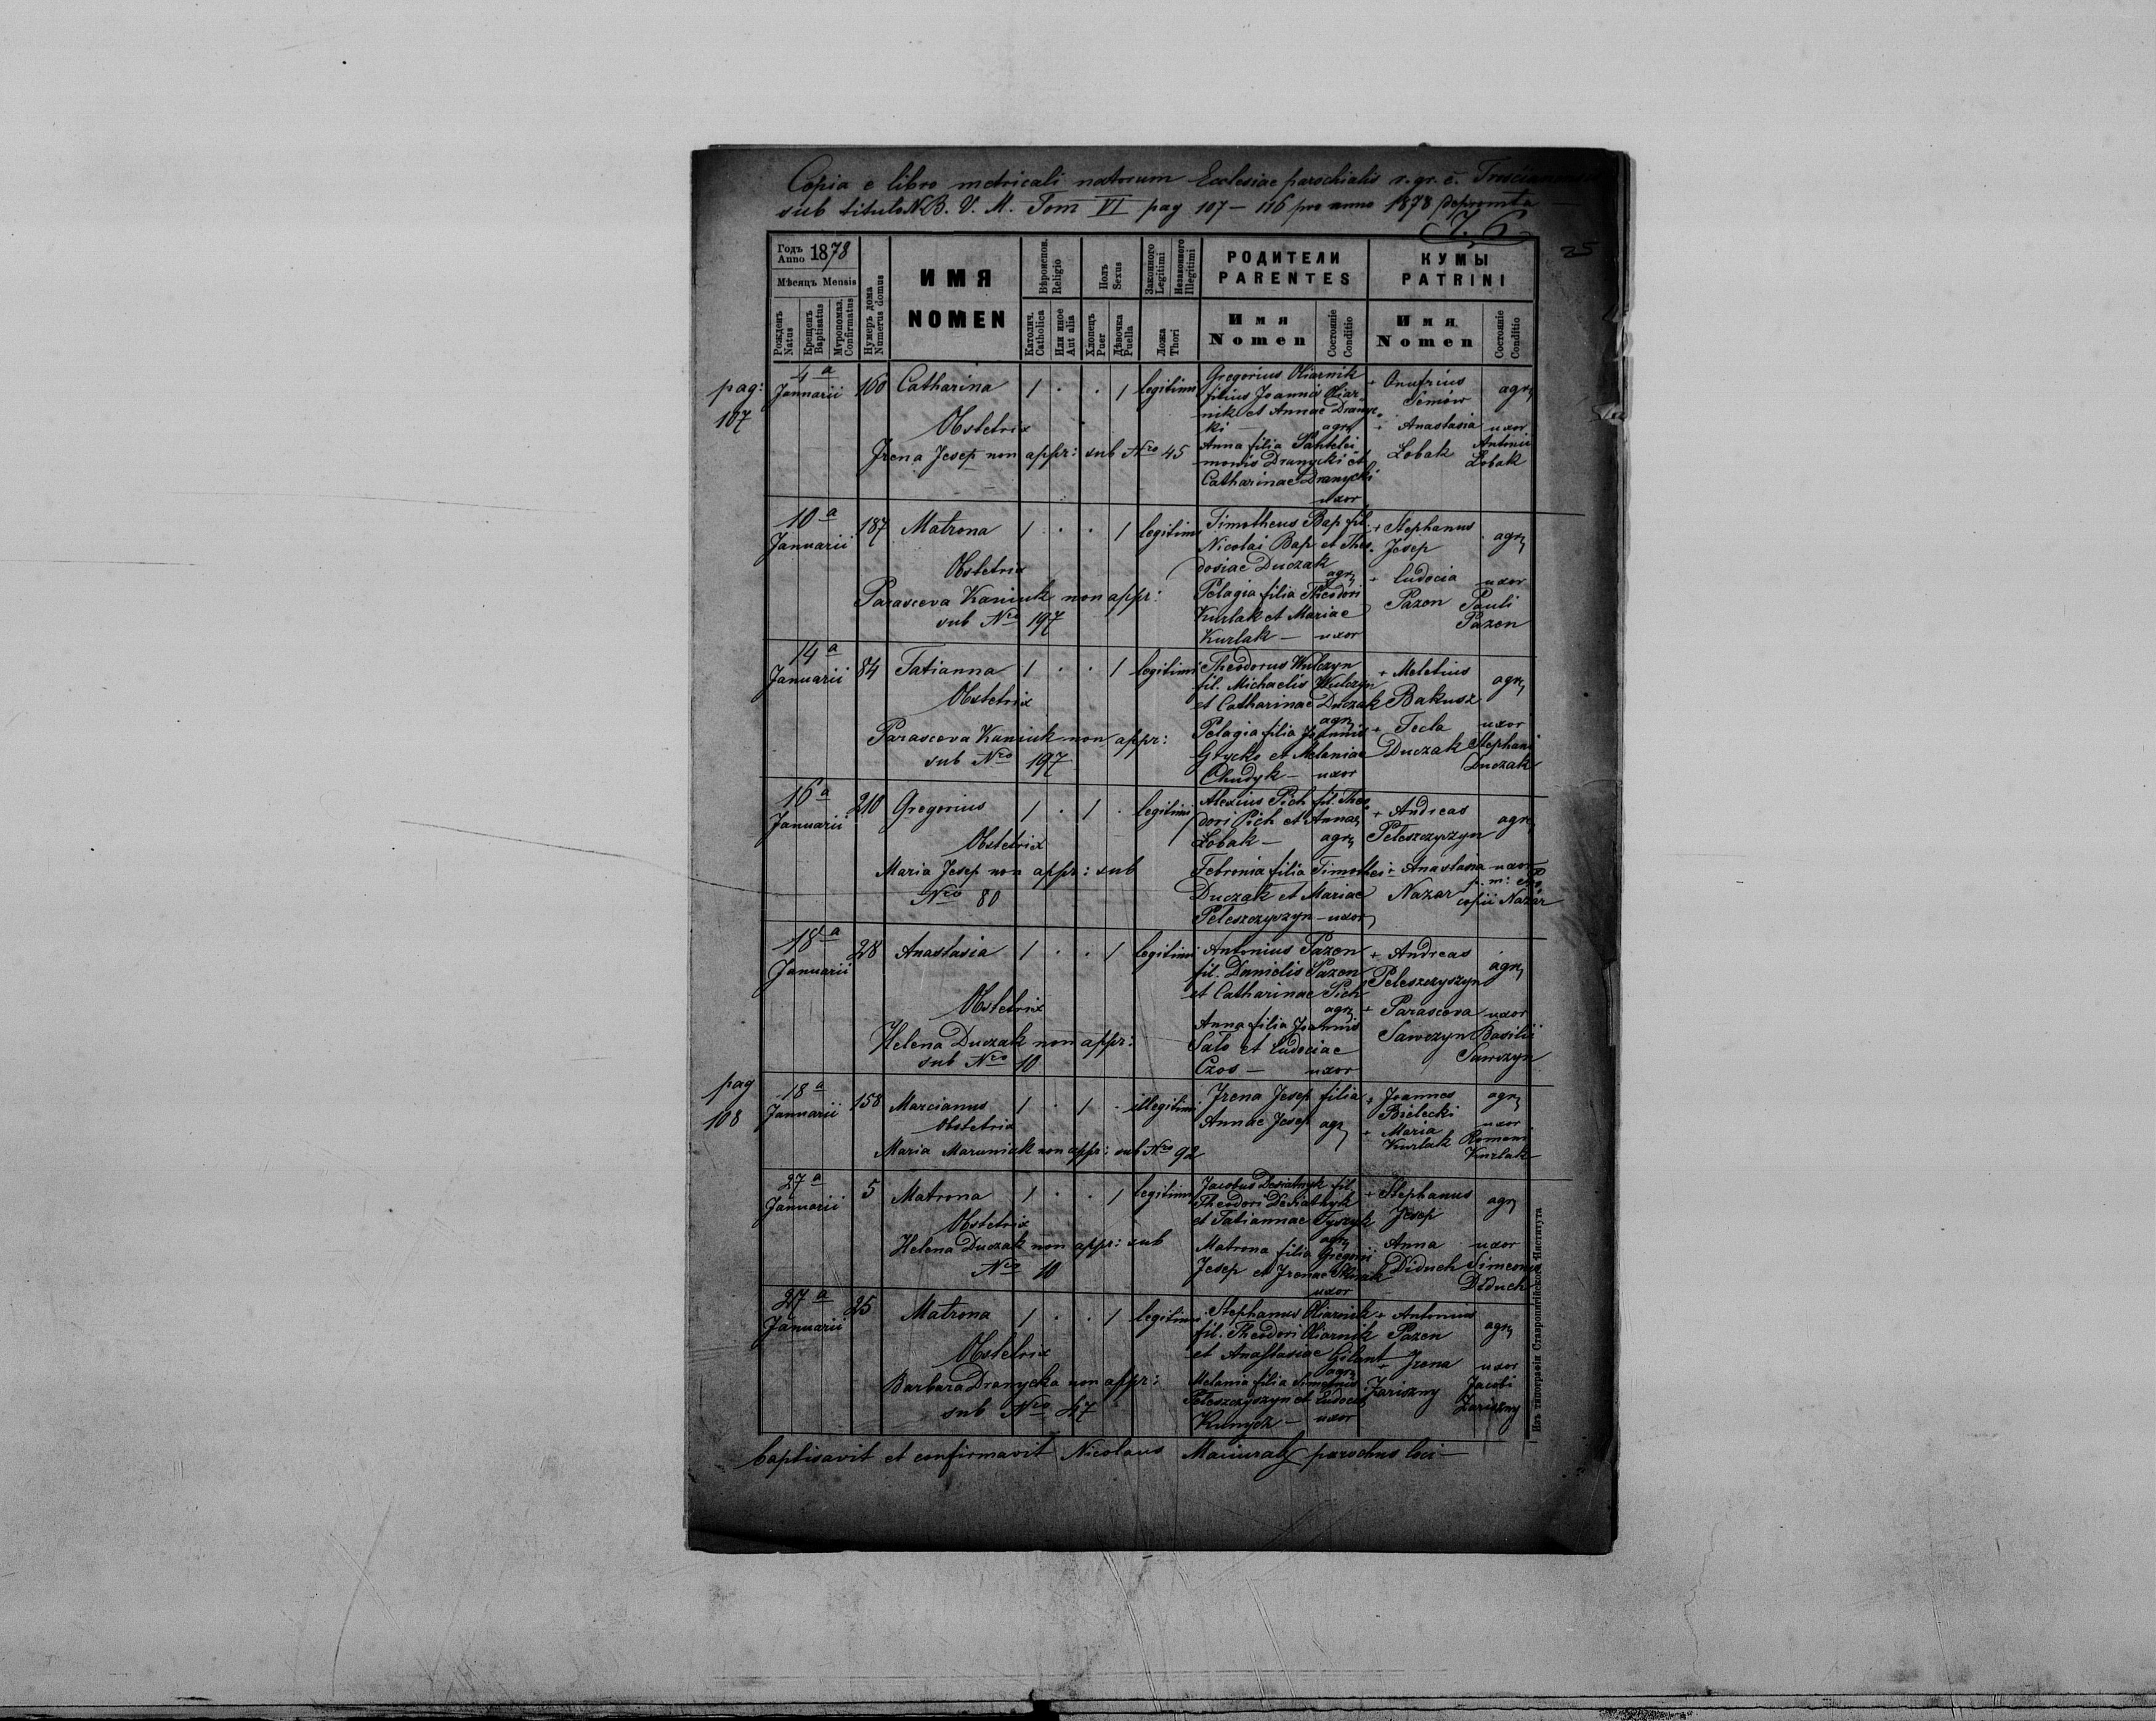 Copia e libro metricali natorum Ecclesiae parochialis r. gr. c.
sub titulo N. B. V. M. Tom VI pag 107 – 116 pro anno 1878 depromta
25
Годъ Anno 1878
Мѣсяцъ Mensis
Рожденъ Natus
Крещенъ Baptisatus
Мѵропомаз. Confirmatus
Нумеръ дома Numerus domus
ИМЯ NOMEN
Вѣроиспов. Religio
Католич. Catholica
Или иное Aut alia
Полъ Sexus
Хлопецъ Puer
Дѣвочка Puella
Законного Legitimi
Незаконного Illegitimi
Ложа Thori
РОДИТЕЛИ PARENTES
Имя Nomen
Состояніе Conditio
КУМЫ PATRINI
Имя Nomen
Состояніе Conditio
pag: 107
4a Januarii 160 Catharina 1 . . 1 legitimi
Obstetrix
Irena Jesep non appr: sub Nro 45
Gregorius Oliarnik
filius Joannis Oliar-
nik et Annae Dranyc-
ki – agr
Anna filia Pantelei-
monis Dranycki et
Catharinae Dranycki
uxor
+ Onufrius
Semow agr
+ Anastasia uxor
Łobak Antonii
Łobak
10a Januarii 187 Matrona 1 . . 1 legitimi
Obstetrix
Parasceva Kaniuk non appr:
sub Nro 197
Timotheus Bap fil.
Nicolai Bap et Theo-
dosiae Duczak
agr
Pelagia filia Theodori
Kurlak et Mariae
Kurlak – uxor
+ Stephanus
Jesep agr
+ Eudocia uxor
Pazon Pauli
Pazon
14a Januarii 84 Tatianna 1 . . 1 legitimi
Obstetrix
Parasceva Kaniuk non appr:
sub Nro 197
Theodorus Wulczyn
fil. Michaelis Wulczyn
et Catharinae Duczak
agr
Pelagia filia Joannis
Grycko et Melaniae
Chudyk – uxor
+ Meletius
Bakusz agr
+ Tecla uxor
Duczak Stephani
Duczak
16a Januarii 210 Gregorius 1 . 1 . legitimi
Obstetrix
Maria Jesep non appr: sub
Nro 80
Alexius Pich fil. Theo-
dori Pich et Annae
Łobak – agr
Febronia filia Timothei
Duczak et Mariae
Peleszczyszyn – uxor
+ Andreas
Peleszczyszyn agr
+ Anastasia uxor
Nazar
copii Nazar
18a Januarii 28 Anastasia 1 . . 1 legitimi
Obstetrix
Helena Duczak non appr:
sub Nro 10
Antonius Pazon
fil. Danielis Pazon
et Catharinae Pich
agr
Anna filia Joannis
Sało et Eudociae
Czos – uxor
+ Andreas
Peleszczyszyn agr
+ Parasceva uxor
Sawczyn Basilii
Sawczyn
pag 108
18a Januarii 158 Marcianus 1 . 1 . illegitimi
Obstetrix
Maria Maruniak non appr: sub Nro 92
Irena Jesep filia
Annae Jesep agr
+ Joannes
Bielecki agr
+ Maria uxor
Kurlak Romani
Kurlak
27a Januarii 5 Matrona 1 . . 1 legitimi
Obstetrix
Helena Duczak non appr: sub
Nro 10
Jacobus Desiatnyk fil.
Theodori Desiatnyk
et Tatiannae Tyszyk
agr
Matrona filia Gregorii
Jesep et Irenae
uxor
+ Stephanus
Jesep agr
Anna uxor
Diduch Simeonis
Diduch
27a Januarii 25 Matrona 1 . . 1 legitimi
Obstetrix
Barbara Dranycka non appr:
sub Nro 47
Stephanus Oliarnik
fil. Theodori Oliarnik
et Anastasiae Gilant
agr
Melania filia Simeonis
Peleszczyszyn et Eudociae
Kunycz – uxor
+ Antonius
Pazon agr
+ Irena uxor
Zariczny Jacobi
Zariczny
Изъ типографіи Ставропигійского Института
baptisavit et confirmavit Nicolaus parochus loci –